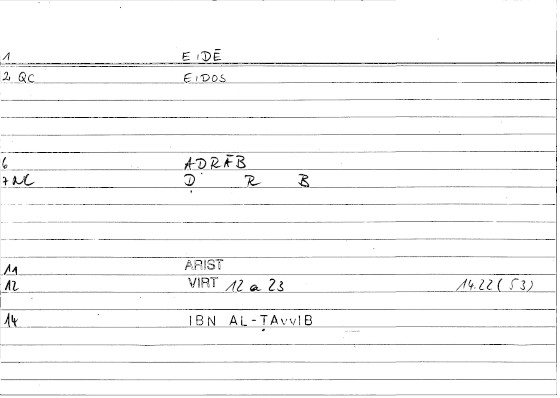 1 EIDĒ
2 QC EIDOS
6 AḌRĀB
7 AC Ḍ R B
11 ARIST
12 VIRT 12 a 23 14.22 (53)
14 IBN AL-ṬAyyIB